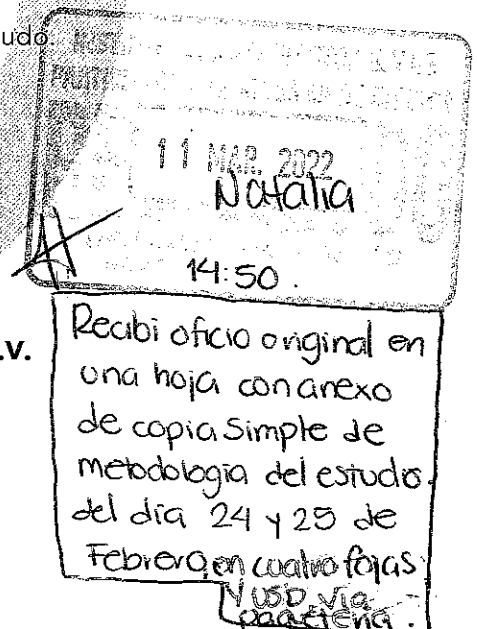 udo.
11 MAR. 2022
Natalia
14:50.
.V.
Recibi oficio original en
una hoja con anexo
de copia simple de
metodologia del estudio
del dia 24 y 25 de
Febrero, en cuatro fojas
y USD, via